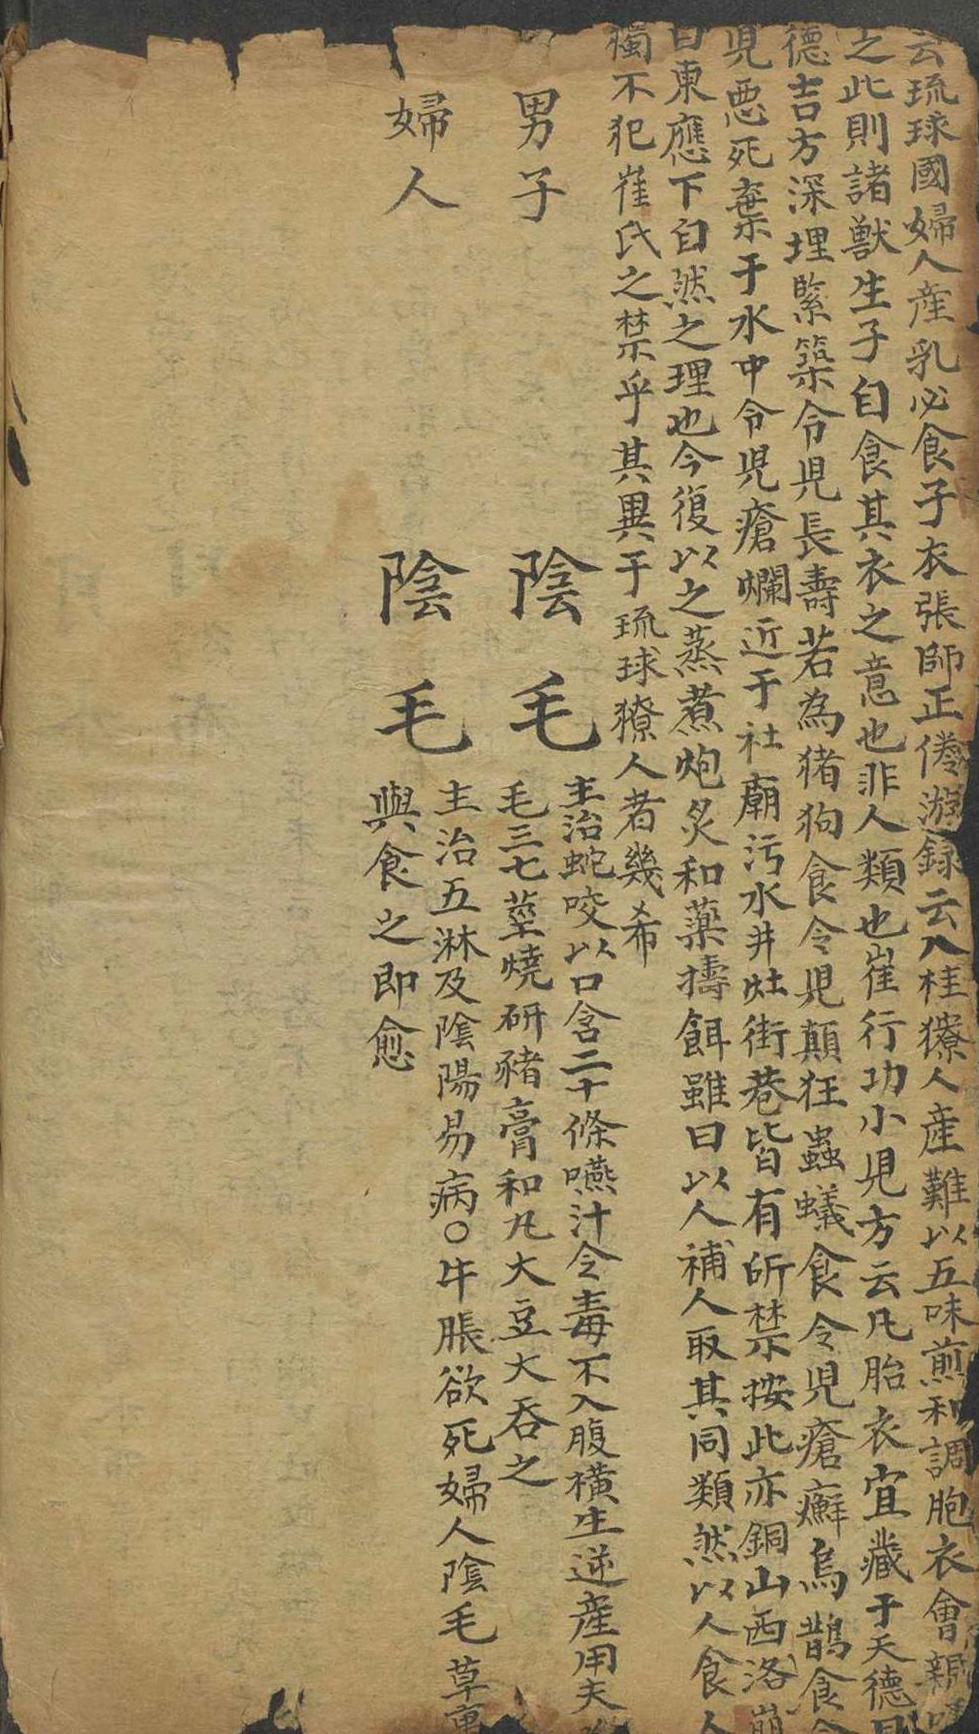 云琉球國婦人産乳必食子衣張師正倦游録云八桂獠人産難以五味煎和調胞衣會親
之此則諸獸生子自食其衣之意也非人類也崔行功小児方云凡胎衣宜藏于天德
德吉方深埋緊築令児長壽若為猪狗食令児顛狂蟲蟻食令児瘡癬烏鵲食令
児惡死棄于水中令児瘡爛近于社廟污水井灶街巷皆有所禁按此亦銅山西洛崩
自東應下自然之理也今復以之蒸煮炮炙和藥擣餌雖曰以人補人取其同類然以人食人
獨不犯崔氏之禁乎其異于琉球獠人者幾希
男子陰毛主治蛇咬以口含二十條嚥汁令毒不入腹橫生逆産用夫
毛三七莖燒研豬膏和凡大豆大吞之
婦人陰毛主治五淋及陰陽易病○牛脹欲死婦人陰毛草裏
與食之即愈